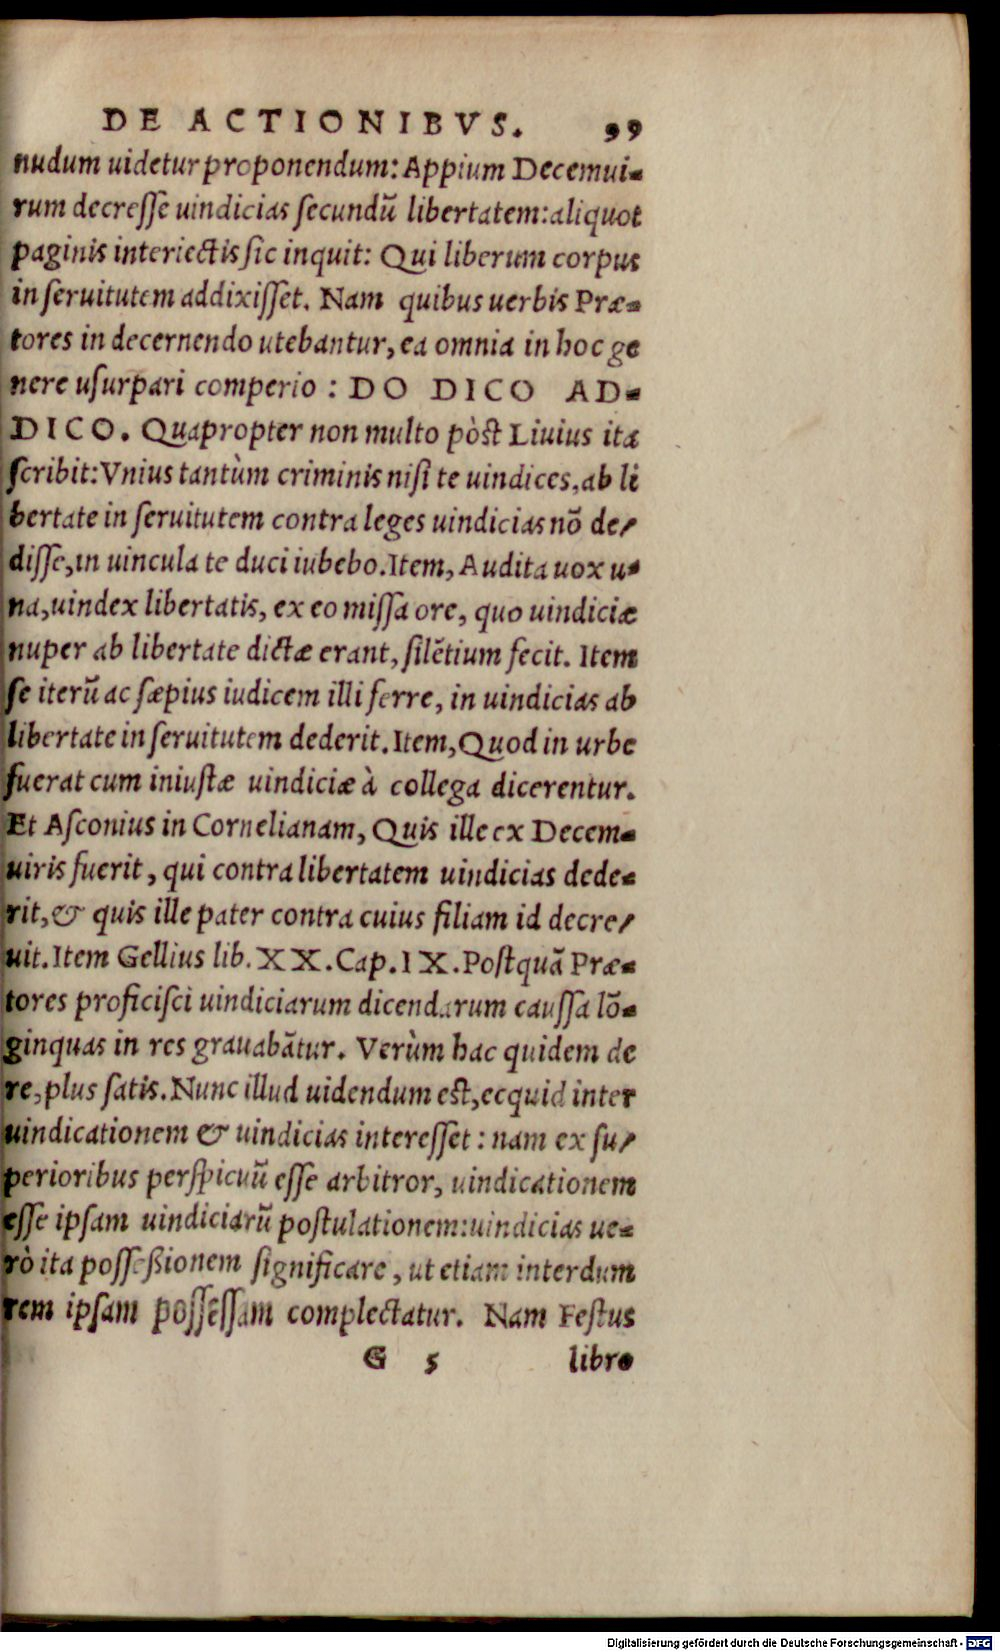 DE ACTIONIBVS. 99
nudum uidetur proponendum: Appium Decemui-
rum decresse uindicias secundū libertatem: aliquot
paginis interiectis sic inquit: Qui liberum corpus
in seruitutem addixisset. Nam quibus uerbis Præ-
tores in decernendo utebantur, ea omnia in hoc ge
nere usurpari comperio : DO DICO AD-
DICO. Quapropter non multo pòst Liuius ita
scribit: Vnius tantùm criminis nisi te uindices, ab li
bertate in seruitutem contra leges uindicias nō de-
disse, in uincula te duci iubebo. Item, Audita uox u-
na, uindex libertatis, ex eo missa ore, quo uindiciæ
nuper ab libertate dictæ erant, silētium fecit. Item
se iterū ac sæpius iudicem illi ferre, in uindicias ab
libertate in seruitutem dederit. Item, Quod in urbe
fuerat cum iniustæ uindiciæ à collega dicerentur.
Et Asconius in Cornelianam, Quis ille ex Decem-
uiris fuerit, qui contra libertatem uindicias dede-
rit, & quis ille pater contra cuius filiam id decre-
uit. Item Gellius lib. XX. Cap. IX. Postquā Præ-
tores proficisci uindiciarum dicendarum caussa lō-
ginquas in res grauabātur. Verùm hac quidem de
re, plus satis. Nunc illud uidendum est, ecquid inter
uindicationem & uindicias interesset : nam ex su-
perioribus perspicuū esse arbitror, uindicationem
esse ipsam uindiciarū postulationem: uindicias ue-
rò ita possessionem significare, ut etiam interdum
rem ipsam possessam complectatur. Nam Festus
G 5 libro
Digitalisierung gefördert durch die Deutsche Forschungsgemeinschaft - DFG